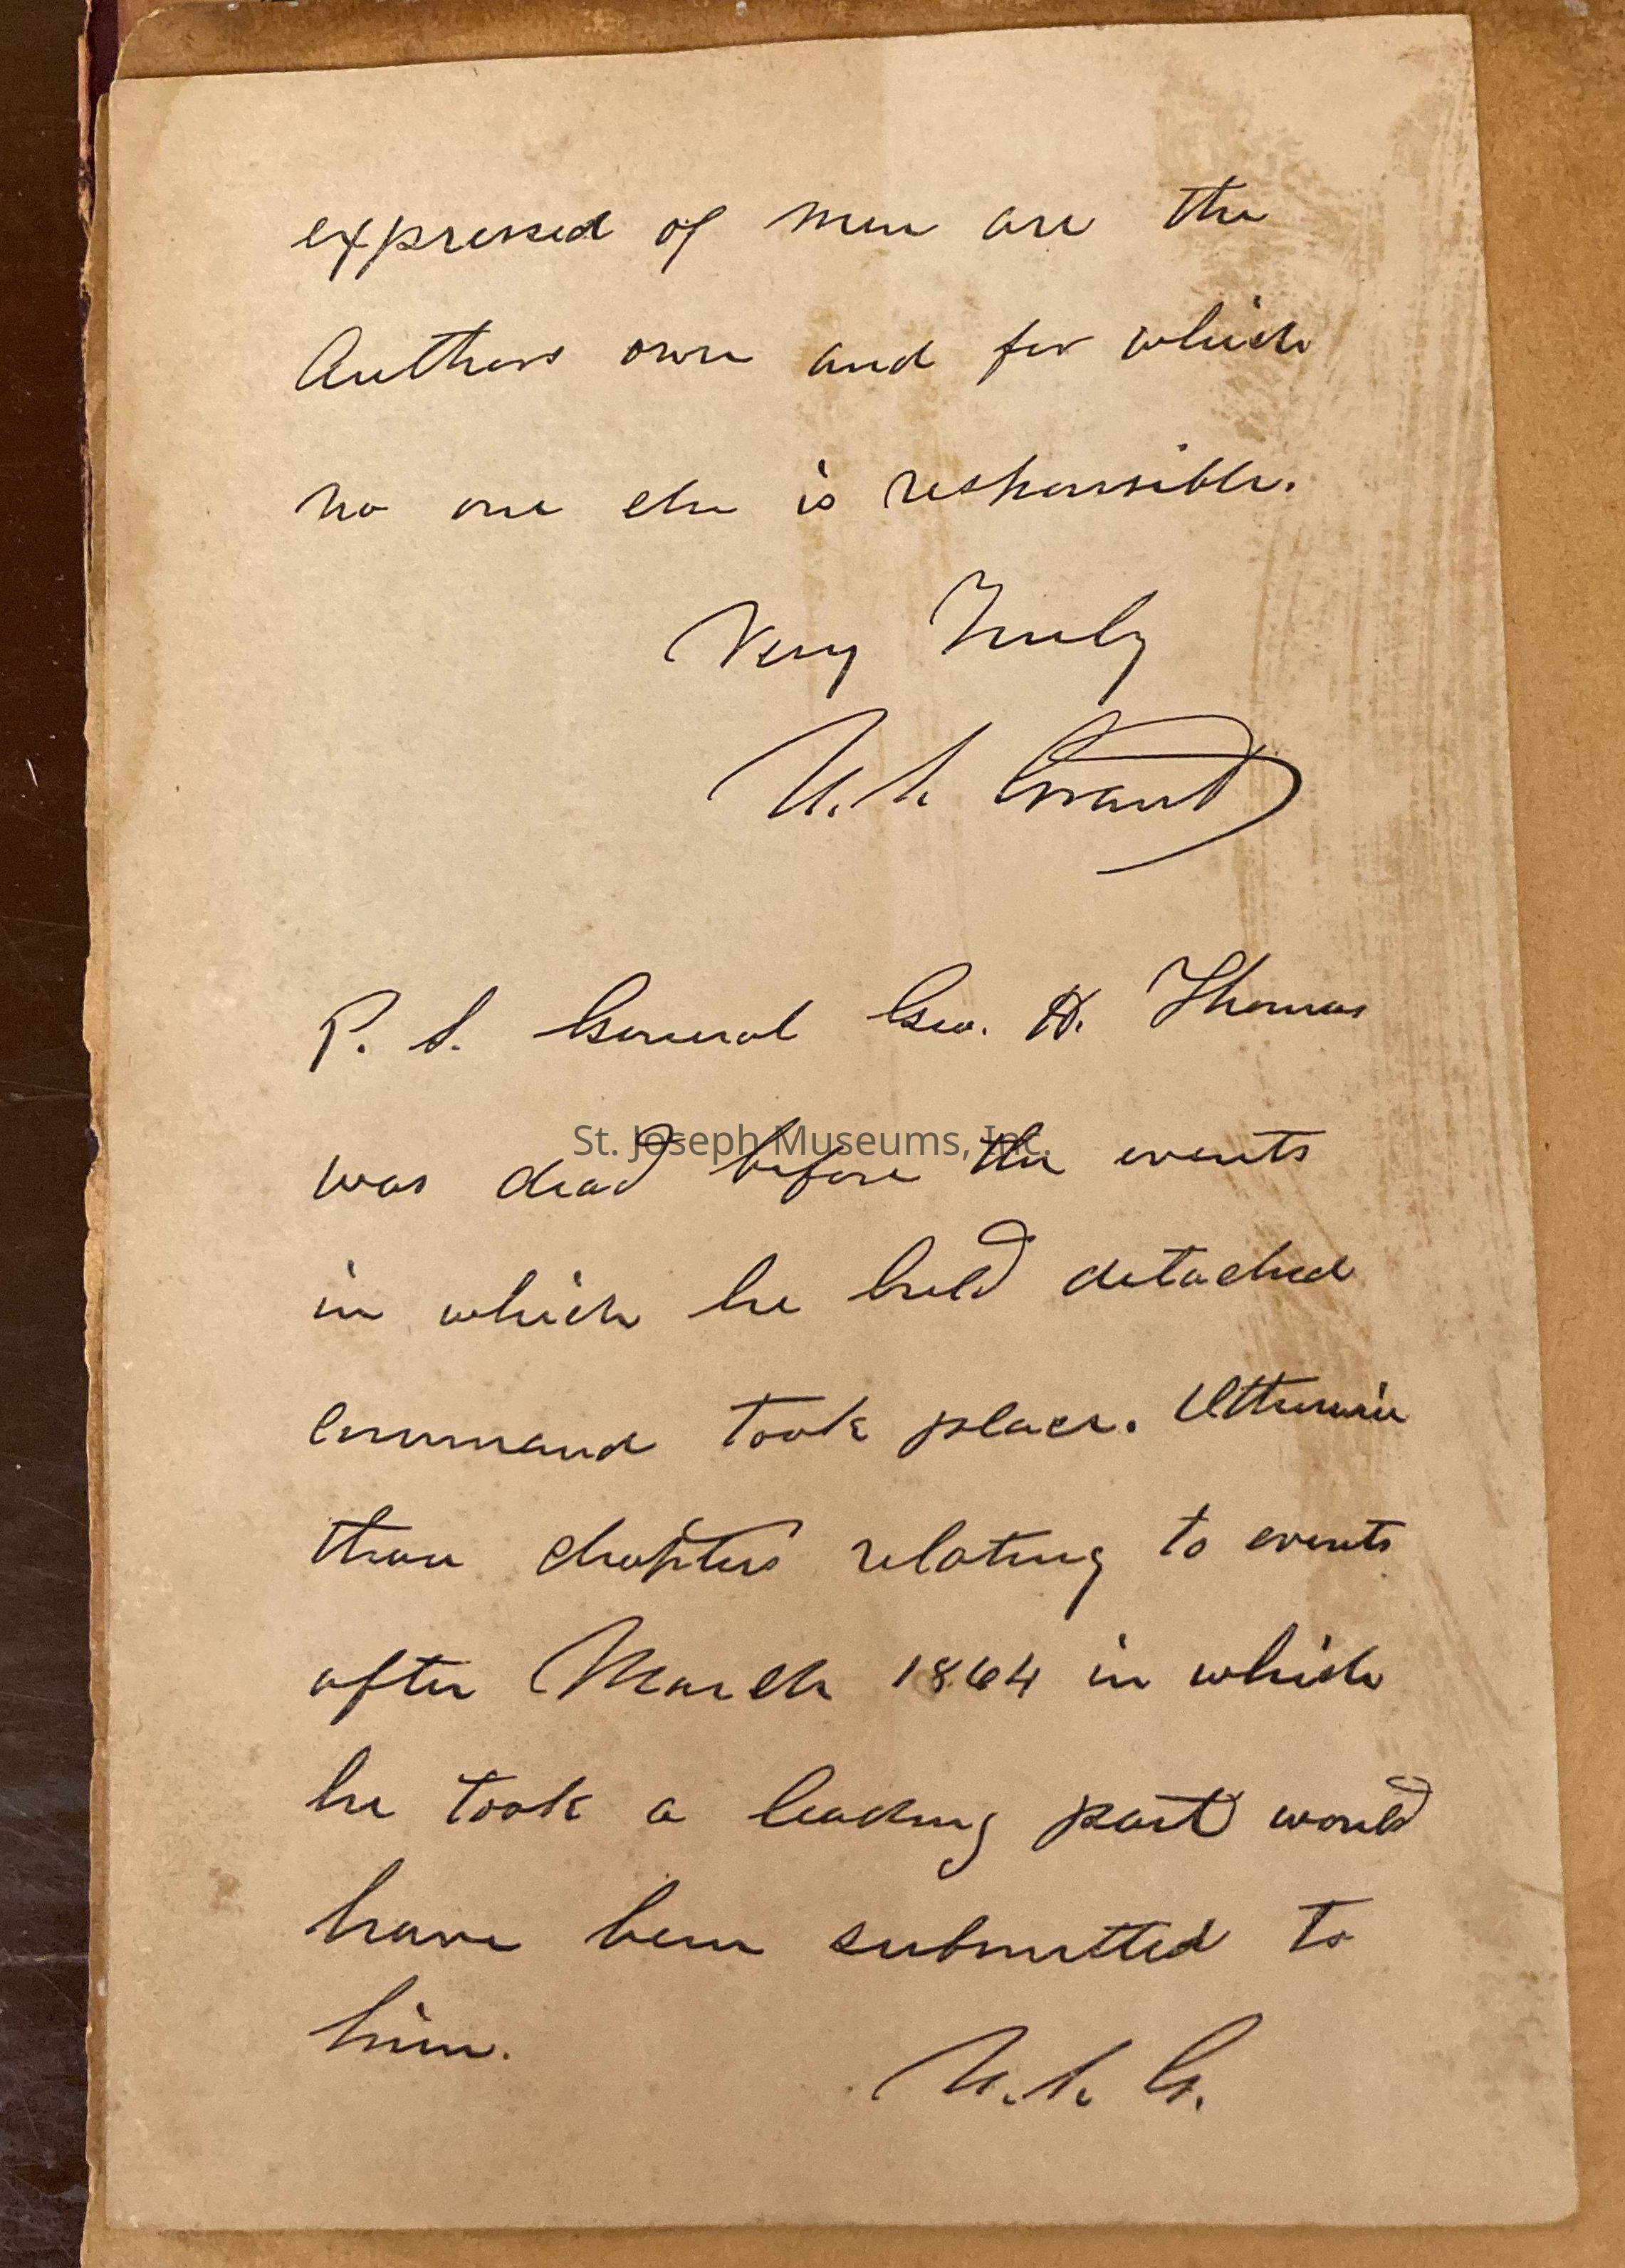 expressed of men are the
Authors own and for which
no one else is responsible.
Very Truly
U. S. Grant
P. S. General Geo. H. Thomas
was dead before the events
St. Joseph Museums, Inc.
in which he held detached
command took place. Otherwise
those chapters relating to events
after March 1864 in which
he took a leading part would
have been submitted to
him.
U. S. G.